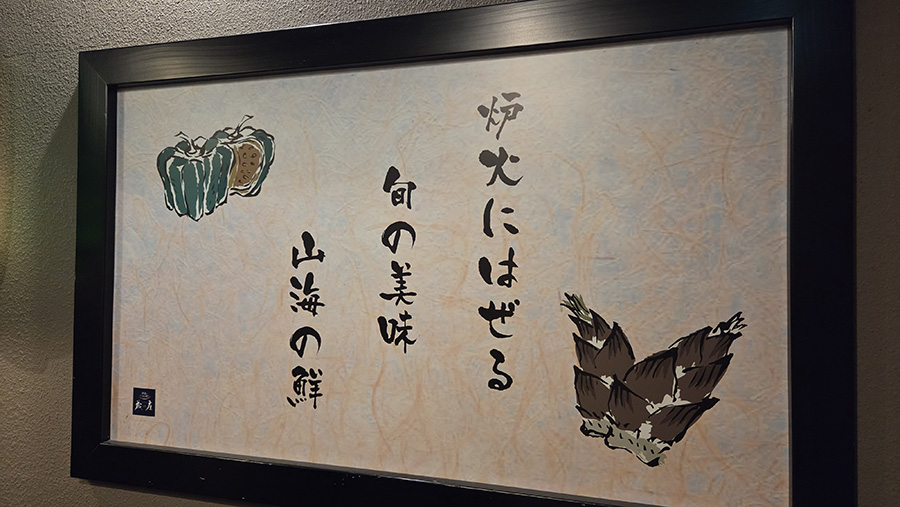 炉火にはぜる
旬の美味
山海の鮮